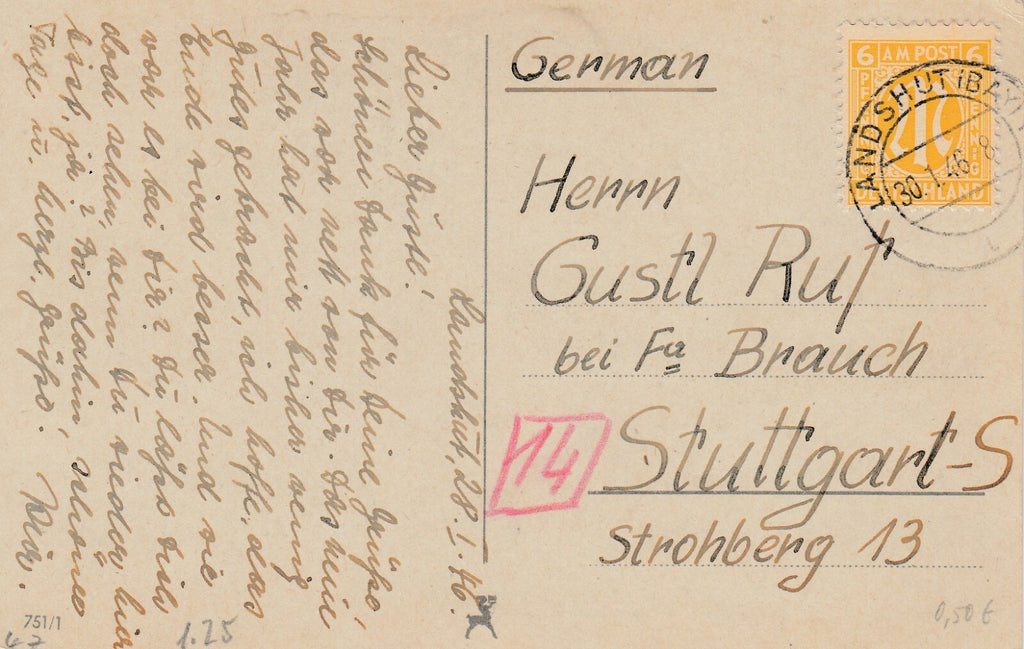 Landshut, 28. I. 46.
Lieber Gustl!
Schönen Dank für Deine Grüße,
das war nett von Dir. Das neue
Jahr hat mir bisher wenig
Gutes gebracht, ich hoffe, das
Ende wird besser. Und wie
war es bei Dir? Du läßt Dich
doch sehen, wenn Du wieder hier
bist, ja? Bis dahin, schöne
Tage u. herzl. Grüße.
751/1
1.25
German
Herrn
Gustl Ruf
bei Fa Brauch
14
Stuttgart-S
Strohberg 13
0,50 €
6 AM POST 6
PFENNIG
DEUTSCHLAND
LANDSHUT (BAY
30.1.46. 8